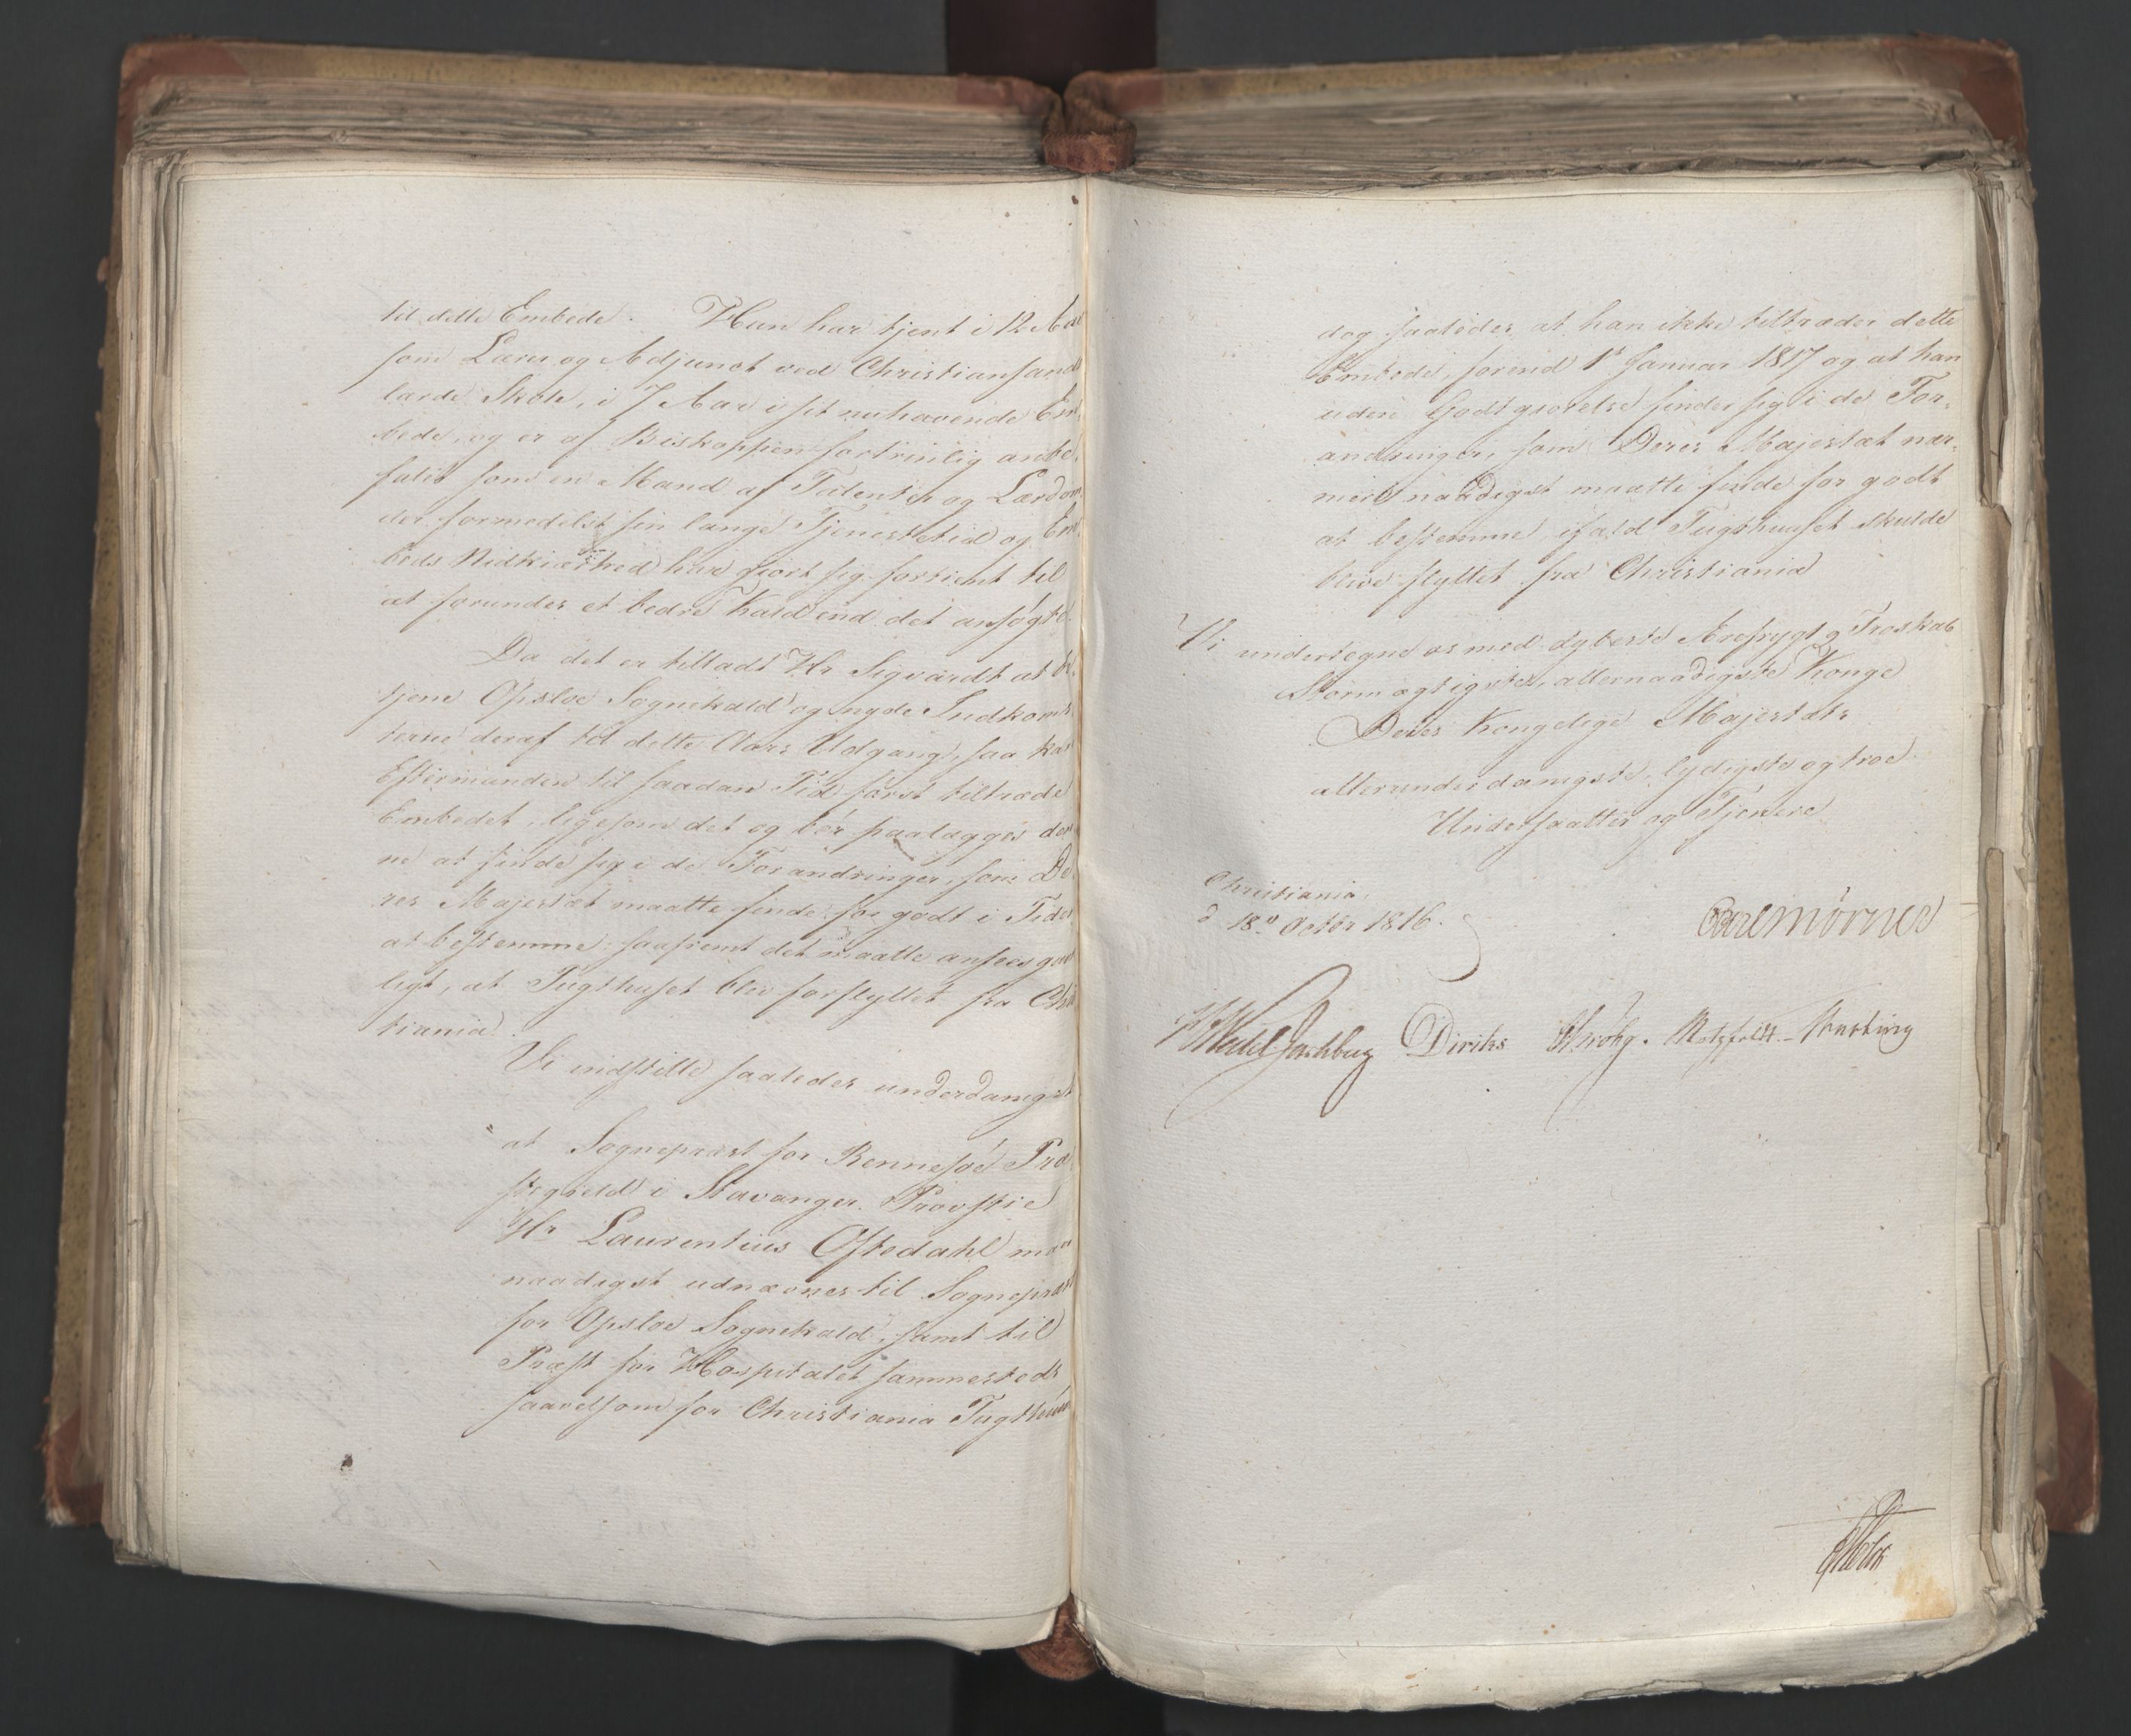 til dette Embede. Han har tjent i 12 Aar
som Lærer og Adjunct ved Christiansands
lærde Skole, i 7 Aar i sit nuhavende Em-
bede, og er af Biskoppen fortrinlig anbe-
falet som en Mand af Talenter og Lærdom
der formedelst sin lange Tjenestetid og Em-
beds Nidkiærhed har giort sig fortient til
at forundes et bedre Kald end det ansøgte.
Da det er tilladt Hr Sigvardt at be-
tjene Opsloe Sognekald og nyde Indkoms-
terne deraf til dette Aars Udgang, saa kan
Eftermanden til saadan Tid først tiltræde
Embedet, ligesom det og bør paalægges den-
ne at finde sig i de Forandringer, som De-
res Majestæt maatte finde for godt i Tiden
at bestemme, saafremt det maatte ansees gavn-
ligt, at Tugthuset blev forflyttet fra Chris-
tiania.
Vi indstille saaledes underdanigst
at Sognepræst for Rennesøe Præ-
stegield i Stavanger Provstie
Hr Laurentius Oftedahl maa
naadigst udnævnes til Sognepræst
for Opsloe Sognekald, samt til
Præst for Hospitalet sammesteds
saavelsom for Christiania Tugthuus
dog saaledes at han ikke tiltræder dette
Embede, forend 1ste Januar 1817 og at han
uden Godtgiorelse finder sig i de For-
andringer, som Deres Majestæt nær-
mere naadigst maatte finde for godt
at bestemme, ifald Tugthuuset skulde
blive flyttet fra Christiania
Vi undertegne os med dybeste Ærefrygt og Troskab
Stormægtigste, allernaadigste Konge
Deres Kongelige Majestæts
allerunderdanigste, lydigste og troe
Undersaatter og Tjenere
Christiania,
d 18de Octbr 1816.
Carl Mörner
Wedel Jarlsberg Diriks Krohg. Motzfeldt. Consbruch
Holst